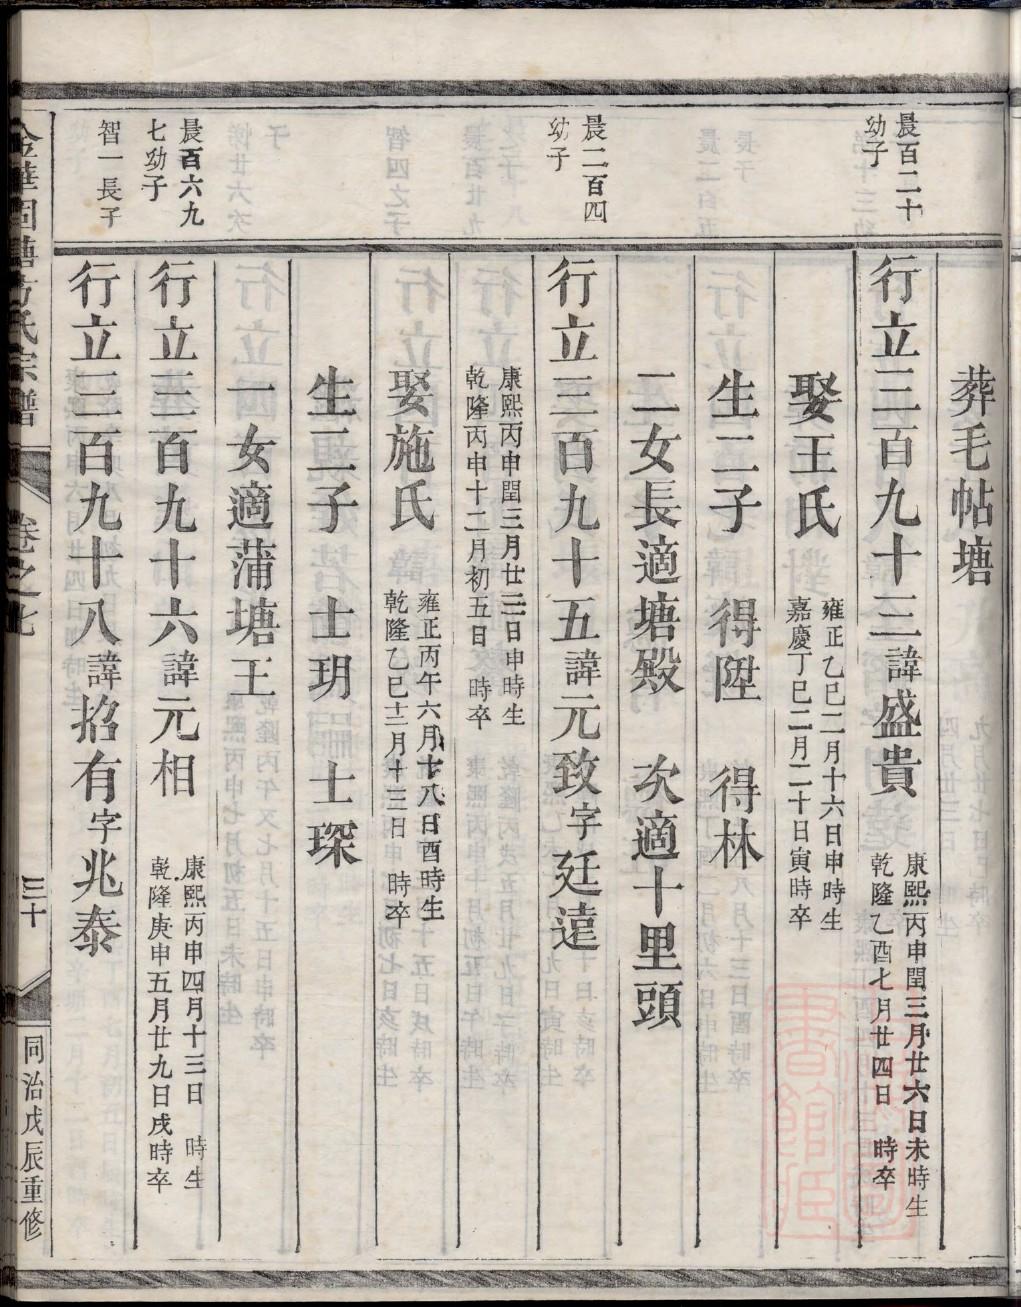 葬毛帖塘
晨百二十
幼子
行立三百九十三諱盛貴
康熙丙申閏三月廿六日未時生
乾隆乙酉七月廿四日 時卒
娶王氏
雍正乙巳二月十六日申時生
嘉慶丁巳二月二十日寅時卒
生二子 得陞 得林
二女長適塘殿 次適十里頭
晨二百四
幼子
行立三百九十五諱元致字廷達
康熙丙申閏三月廿三日申時生
乾隆丙申十二月初五日 時卒
娶施氏
雍正丙午六月十八日酉時生
乾隆乙巳十二月十三日 時卒
生二子 士玥 士琛
一女適蒲塘王
晨百六九
七幼子
行立三百九十六諱元相
康熙丙申四月十三日 時生
乾隆庚申五月廿九日戌時卒
智一長子
行立三百九十八諱招有字兆泰
金華固塘方氏宗譜 卷之七 三十 同治戊辰重修